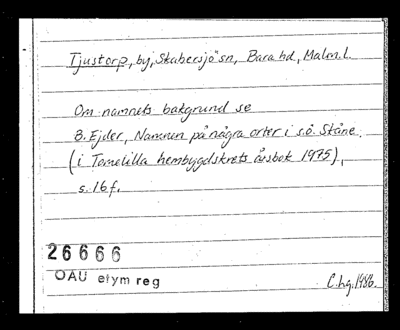 Tjustorp, by, Skabersjö sn, Bara hd, Malm. l.
Om namnets bakgrund se
B. Ejder, Namnen på några orter i s.ö. Skåne.
(i Tomelilla hembygdskrets årsbok 1975),
s. 16 f.
26666
OAU etym reg
C. hg. 1986.